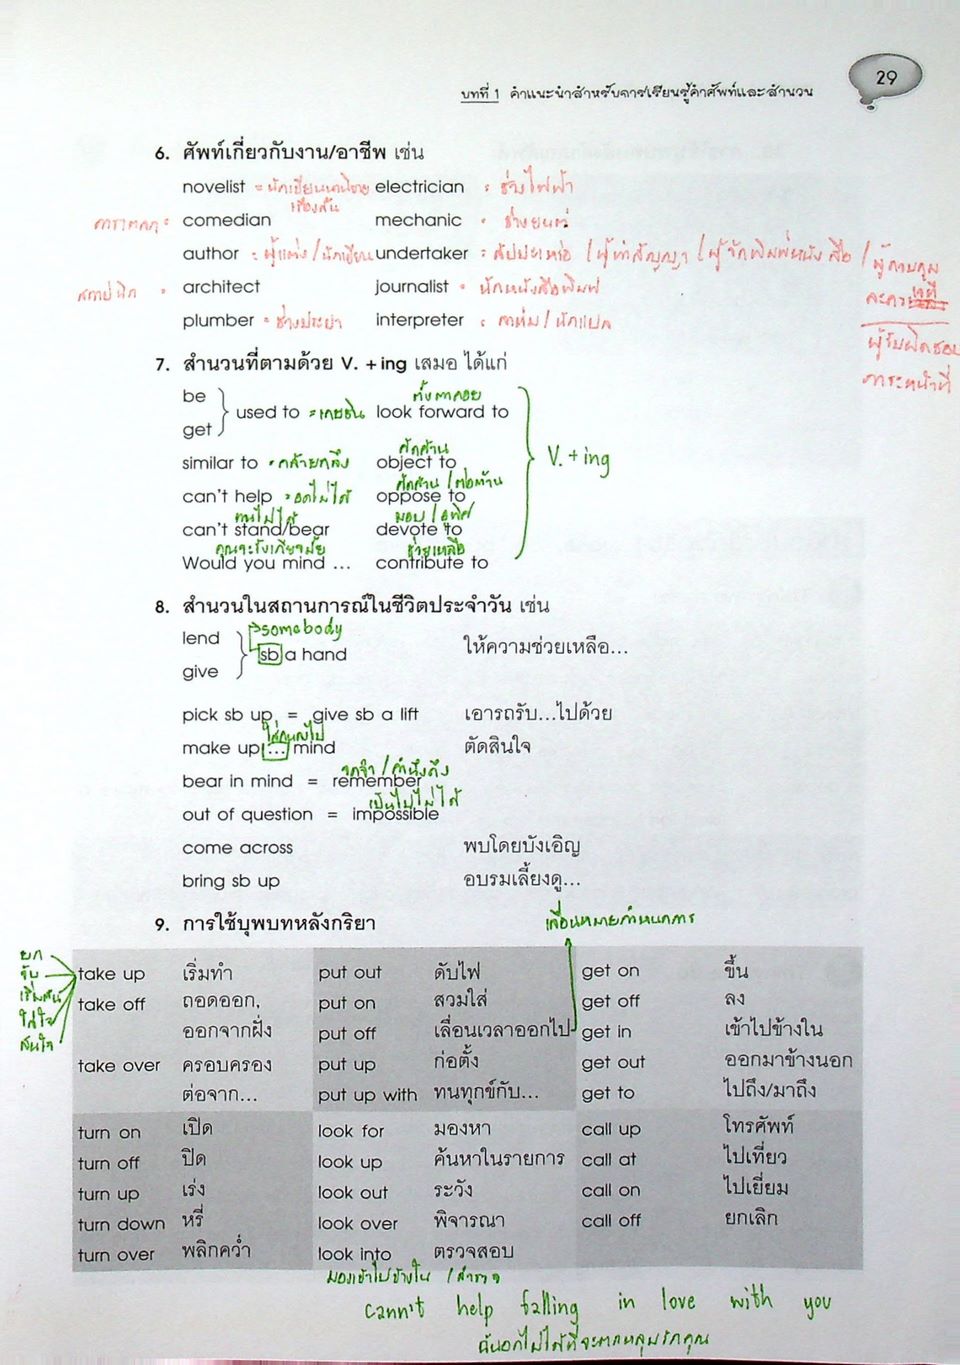 บทที่ 1 คำแนะนำสำหรับการเรียนรู้คำศัพท์และสำนวน 29
6. ศัพท์เกี่ยวกับงาน/อาชีพ เช่น
novelist = นักเขียนนวนิยาย electrician = ช่างไฟฟ้า
เรื่องสั้น
ดาราตลก = comedian mechanic = ช่างยนต์
author = ผู้แต่ง/นักเขียน undertaker = สัปเหร่อ / ผู้ทำสัญญา / ผู้จัดพิมพ์หนังสือ / ผู้ควบคุม
สถาปนิก = architect journalist = นักหนังสือพิมพ์
plumber = ช่างประปา interpreter = ล่าม / นักแปล
ผู้รับผิดชอบ
ภาระหน้าที่
7. สำนวนที่ตามด้วย V. + ing เสมอ ได้แก่
be ตั้งตาคอย
used to = เคยชิน look forward to
get
คัดค้าน
similar to = คล้ายคลึง object to V. + ing
คัดค้าน / ต่อต้าน
can't help = อดไม่ได้ oppose to
ทนไม่ได้ มอบ / อุทิศ
can't stand/bear devote to
คุณจะรังเกียจมั้ย ช่วยเหลือ
Would you mind ... contribute to
8. สำนวนในสถานการณ์ในชีวิตประจำวัน เช่น
somebody
lend
sb a hand ให้ความช่วยเหลือ...
give
pick sb up = give sb a lift เอารถรับ...ไปด้วย
make up ... mind ตัดสินใจ
จดจำ / คำนึงถึง
bear in mind = remember
เป็นไปไม่ได้
out of question = impossible
come across พบโดยบังเอิญ
bring sb up อบรมเลี้ยงดู...
9. การใช้บุพบทหลังกริยา
เลื่อนหมายกำหนดการ
ยก
รับ
เริ่มต้น
ใส่ใจ
สนใจ
take up เริ่มทำ put out ดับไฟ get on ขึ้น
take off ถอดออก, put on สวมใส่ get off ลง
ออกจากฝั่ง put off เลื่อนเวลาออกไป get in เข้าไปข้างใน
take over ครอบครอง put up ก่อตั้ง get out ออกมาข้างนอก
ต่อจาก... put up with ทนทุกข์กับ... get to ไปถึง/มาถึง
turn on เปิด look for มองหา call up โทรศัพท์
turn off ปิด look up ค้นหาในรายการ call at ไปเที่ยว
turn up เร่ง look out ระวัง call on ไปเยี่ยม
turn down หรี่ look over พิจารณา call off ยกเลิก
turn over พลิกคว่ำ look into ตรวจสอบ
มองเข้าไปข้างใน / สำรวจ
cann't help falling in love with you
ฉันอดไม่ได้ที่จะตกหลุมรักคุณ